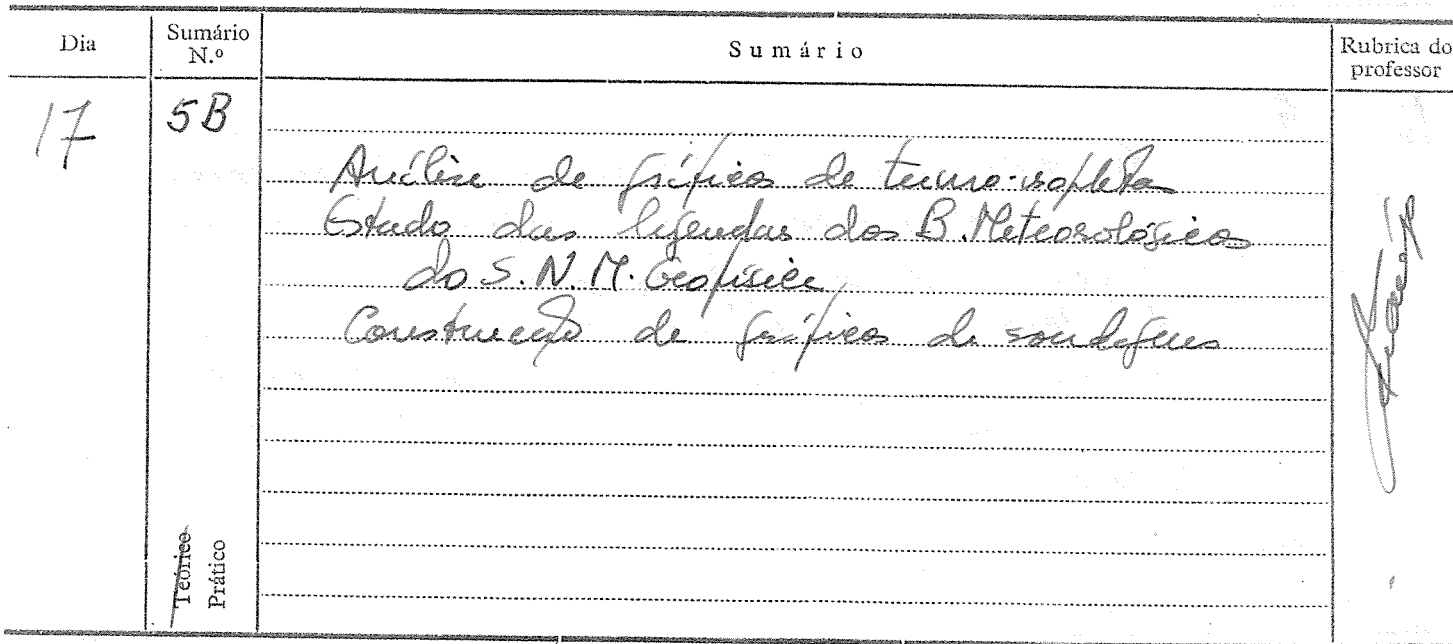 Dia
Sumário N.º
Sumário
Rubrica do professor
17
5B
Análise de gráficos de termo-isopletas
Estudo das legendas dos B. Meteorológicos
do S. N. M. Geofísica
Construção de gráficos de sondagens
Teórico
Prático